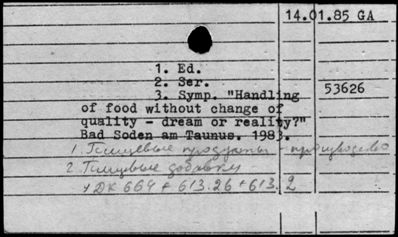 14.01.85 GA
1. Ed.
2. Ser.
3. Symp. "Handling
53626
of food without change of
quality - dream or reality?"
Bad Soden am Taunus. 1983.
1. Пищевые продукты - производство
2. Пищевые добавки
УДК 664 + 613.26 + 613.2